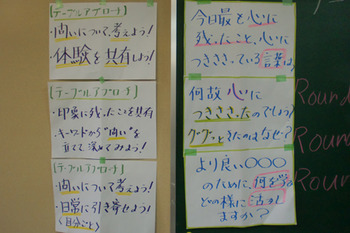 【テーブルアプローチ】
・問いについて、考えよう!
・体験を共有しよう!
【テーブルアプローチ】
・印象に残ったことを共有
・キーワードから"問い"を
立てて深めてみよう!
【テーブルアプローチ】
・問いについて考えよう!
・日常に引き寄せよう!
(自分ごと)
今日最も心に
残ったこと、心に
つきささっている言葉は、
何故心に
つきささったのでしょう?
ググッときたのはなぜ?
より良い〇〇〇
のために、何を学び
どの様に活かし
ますか?
Round
Round
Round